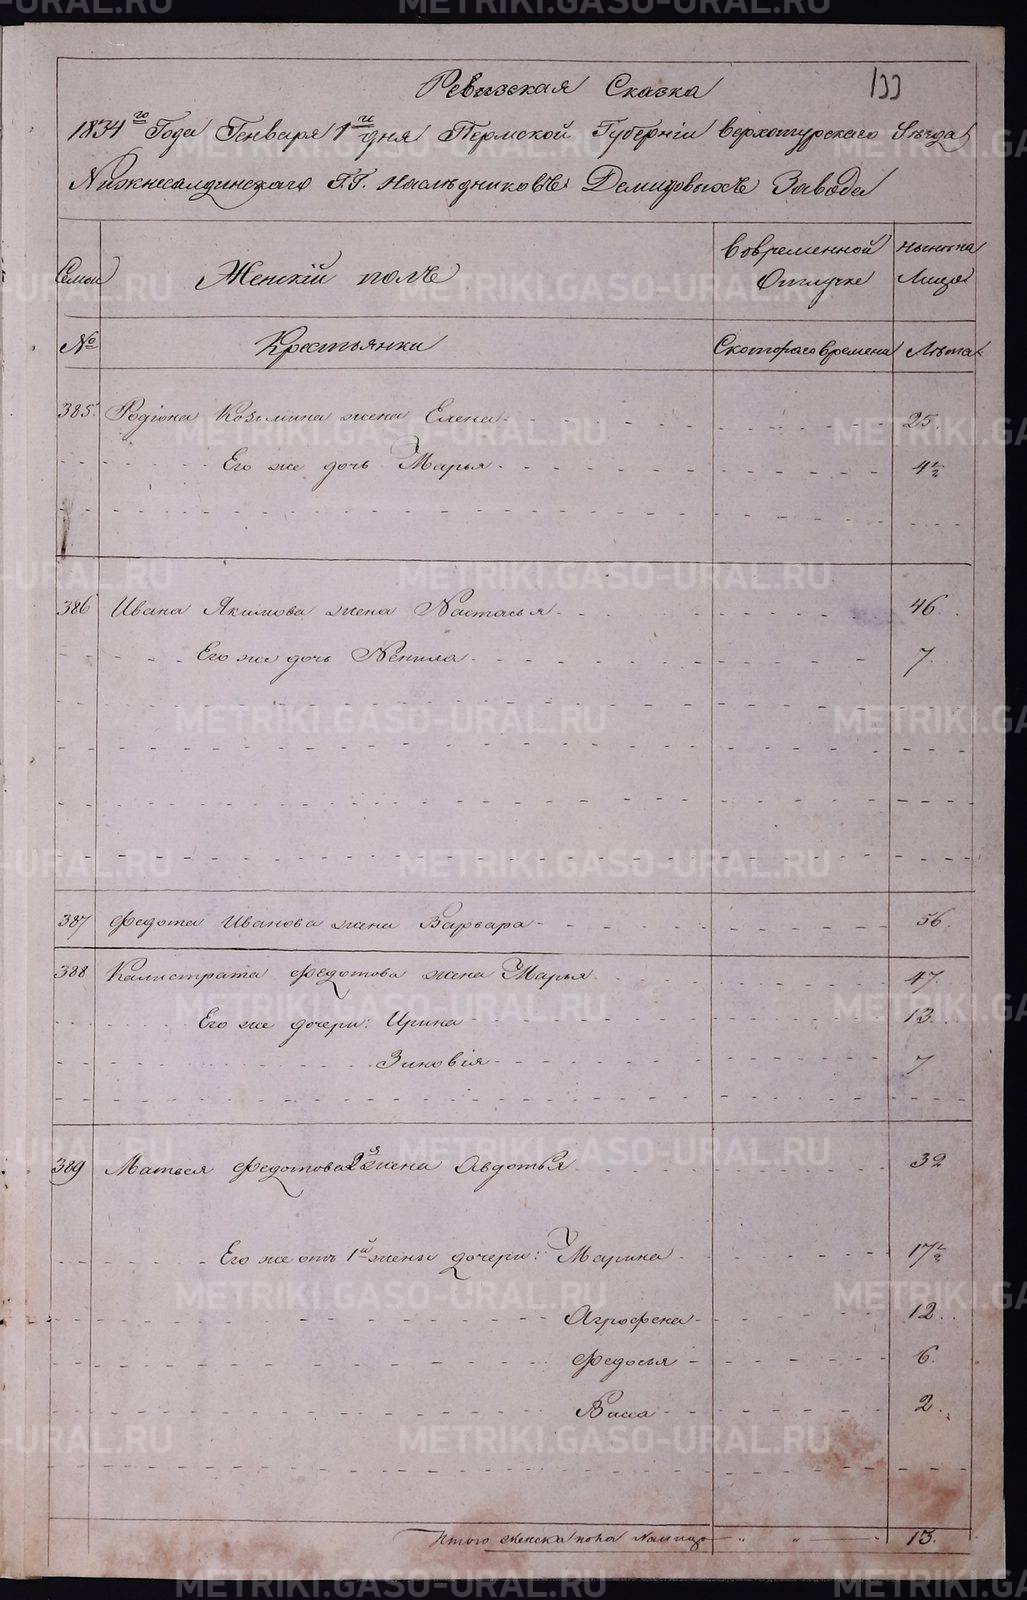 133
Ревизская Сказка
1834го Года Генваря 1го дня Пермской Губернiи Верхотурскаго Уѣзда
Нижнесалдинскаго Г.Г. Наслѣдниковъ Демидовыхъ Завода
Семьи Женскiй полъ Во временной Отлучке Ныне на Лицо
№ Крестьянки С котораго времени Лѣта
385. Родiона Козьмина жена Елена 25.
Его же дочь Марья 4½
386 Ивана Якимова жена Настасья 46.
Его же дочь Ненила 7.
387 Федота Иванова жена Варвара 56.
388 Калистрата Федотова жена Марья 47.
Его же дочери: Ирина 13.
Зиновiя 7
389 Матвея Федотова 2я жена Авдотья 32
Его же отъ 1й жены дочери: Марина 17½
Агрофена 12.
Федосья 6.
Васса 2.
Итого женска пола На лицо " " 13.
METRIKI.GASO-URAL.RU